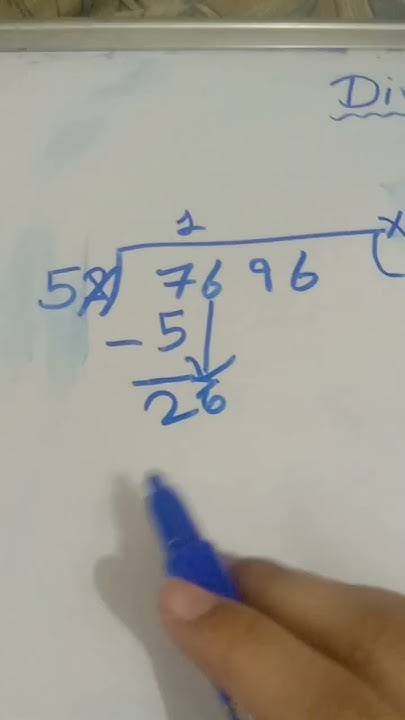 Di
1 x
52) 7696
- 5
26